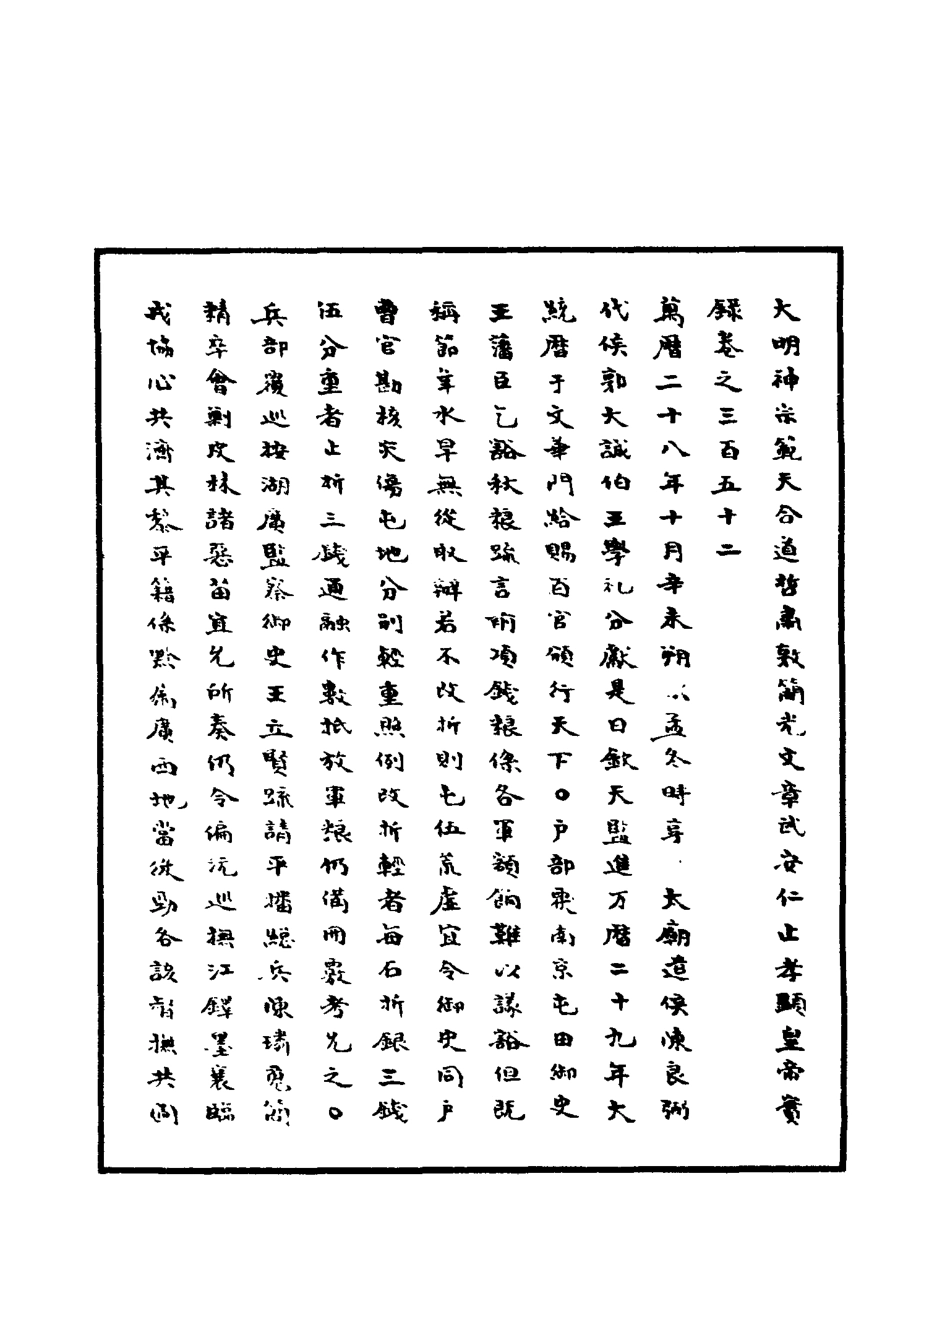 大明神宗範天合道哲肅敦簡光文章武安仁止孝顯皇帝實
錄卷之三百五十二
萬曆二十八年十月辛未朔以孟冬時享太廟遣侯陳良弼
代侯郭大誠伯王學礼分獻是日欽天監進万曆二十九年大
統曆于文華門給賜百官頒行天下○戶部覆南京屯田御史
王藩臣乞豁秋糧疏言兩項錢糧係各軍額餉難以議豁但既
稱節年水旱無從取辦若不改折則屯伍荒虛宜令御史同戶
曹官勘核灾傷屯地分別輕重照例改折輕者每石折銀三錢
伍分重者止折三錢通融作數抵放軍糧仍備冊覈考允之○
兵部覆巡按湖廣監察御史王立賢疏請平播總兵陳璘蒐簡
精卒會剿皮林諸惡苗宜允所奏仍令偏沅巡撫江鐸墨衰臨
戎協心共濟其黎平籍係黔為廣西地當從勁各該督撫共圖